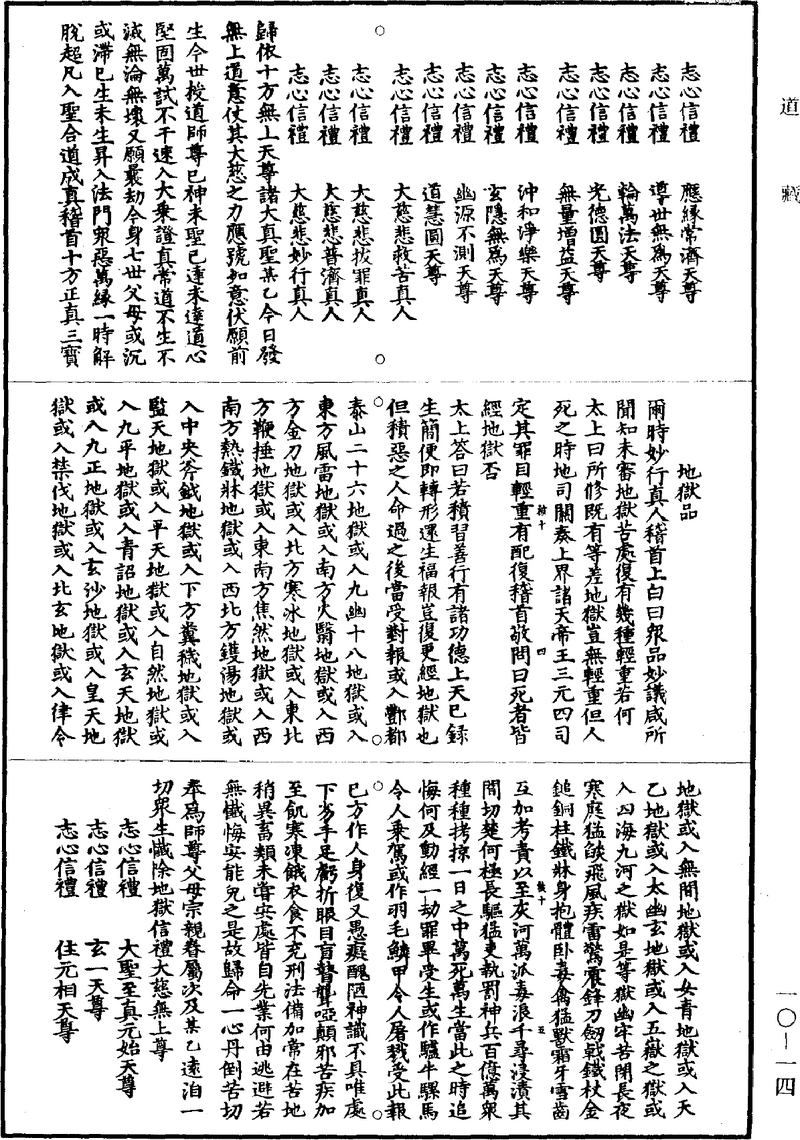 道藏
志心信禮　應緣常濟天尊
志心信禮　導世無為天尊
志心信禮　輪萬法天尊
志心信禮　光德圓天尊
志心信禮　無量增益天尊
志心信禮　沖和淨樂天尊
志心信禮　玄隱無為天尊
志心信禮　幽源不測天尊
志心信禮　道慧圓天尊
志心信禮　大慈悲救苦真人
志心信禮　大慈悲拔罪真人
志心信禮　大慈悲普濟真人
志心信禮　大慈悲妙行真人
歸依十方無上天尊諸大真聖某乙今日發
無上道意仗其大慈之力應號如意伏願前
生今世投道師尊已神未聖已達未達道心
堅固萬試不干速入大乘證真常道不生不
滅無淪無壞又願曩劫今身七世父母或沉
或滯已生未生昇入法門眾惡萬緣一時解
脫超凡入聖合道成真稽首十方正真三寶
地獄品
爾時妙行真人稽首上白曰眾品妙議咸所
聞知未審地獄苦處復有幾種輕重若何
太上曰所修既有等差地獄豈無輕重但人
死之時地司關奏上界諸天帝王三元四司
定其罪目輕重有配復稽首敬問曰死者皆
經地獄否
太上答曰若積習善行有諸功德上天已錄
生簡便即轉形還生福報豈復更經地獄也
但積惡之人命過之後當受對報或入酆都
泰山二十六地獄或入九幽十八地獄或入
東方風雷地獄或入南方火翳地獄或入西
方金刀地獄或入北方寒冰地獄或入東北
方鞭捶地獄或入東南方焦然地獄或入西
南方熱鐵牀地獄或入西北方鑊湯地獄或
入中央斧鉞地獄或入下方糞穢地獄或入
監天地獄或入平天地獄或入自然地獄或
入九平地獄或入青詔地獄或入玄天地獄
或入九正地獄或入玄沙地獄或入皇天地
獄或入禁伐地獄或入北玄地獄或入律令
地獄或入無間地獄或入女青地獄或入天
乙地獄或入太幽玄地獄或入五嶽之獄或
入四海九河之獄如是等獄幽牢苦閉長夜
寒庭猛燄飛風疾雷驚震鋒刀劒戟鐵杖金
鎚銅柱鐵牀身抱體卧毒禽猛獸霜牙雪齒
互加考責以至灰河萬派毒浪千尋浸漬其
間切楚何極長驅猛吏執罰神兵百億萬眾
種種拷掠一日之中萬死萬生當此之時追
悔何及動經一劫罪畢受生或作驢牛騾馬
令人乘駕或作羽毛鱗甲令人屠戮受此報
已方作人身復又愚癡醜陋神識不具唯處
下劣手足虧折眼目盲瞽聾啞顛邪苦疾加
至飢寒凍餓衣食不充刑法備加常在苦地
稍異畜類未嘗安處皆自先業何由逃避若
無懺悔安能免之是故歸命一心丹倒苦切
奉為師尊父母宗親眷屬次及某乙遠洎一
切眾生懺除地獄信禮大慈無上尊
志心信禮　大聖至真元始天尊
志心信禮　玄一天尊
志心信禮　住元相天尊
一〇—一四